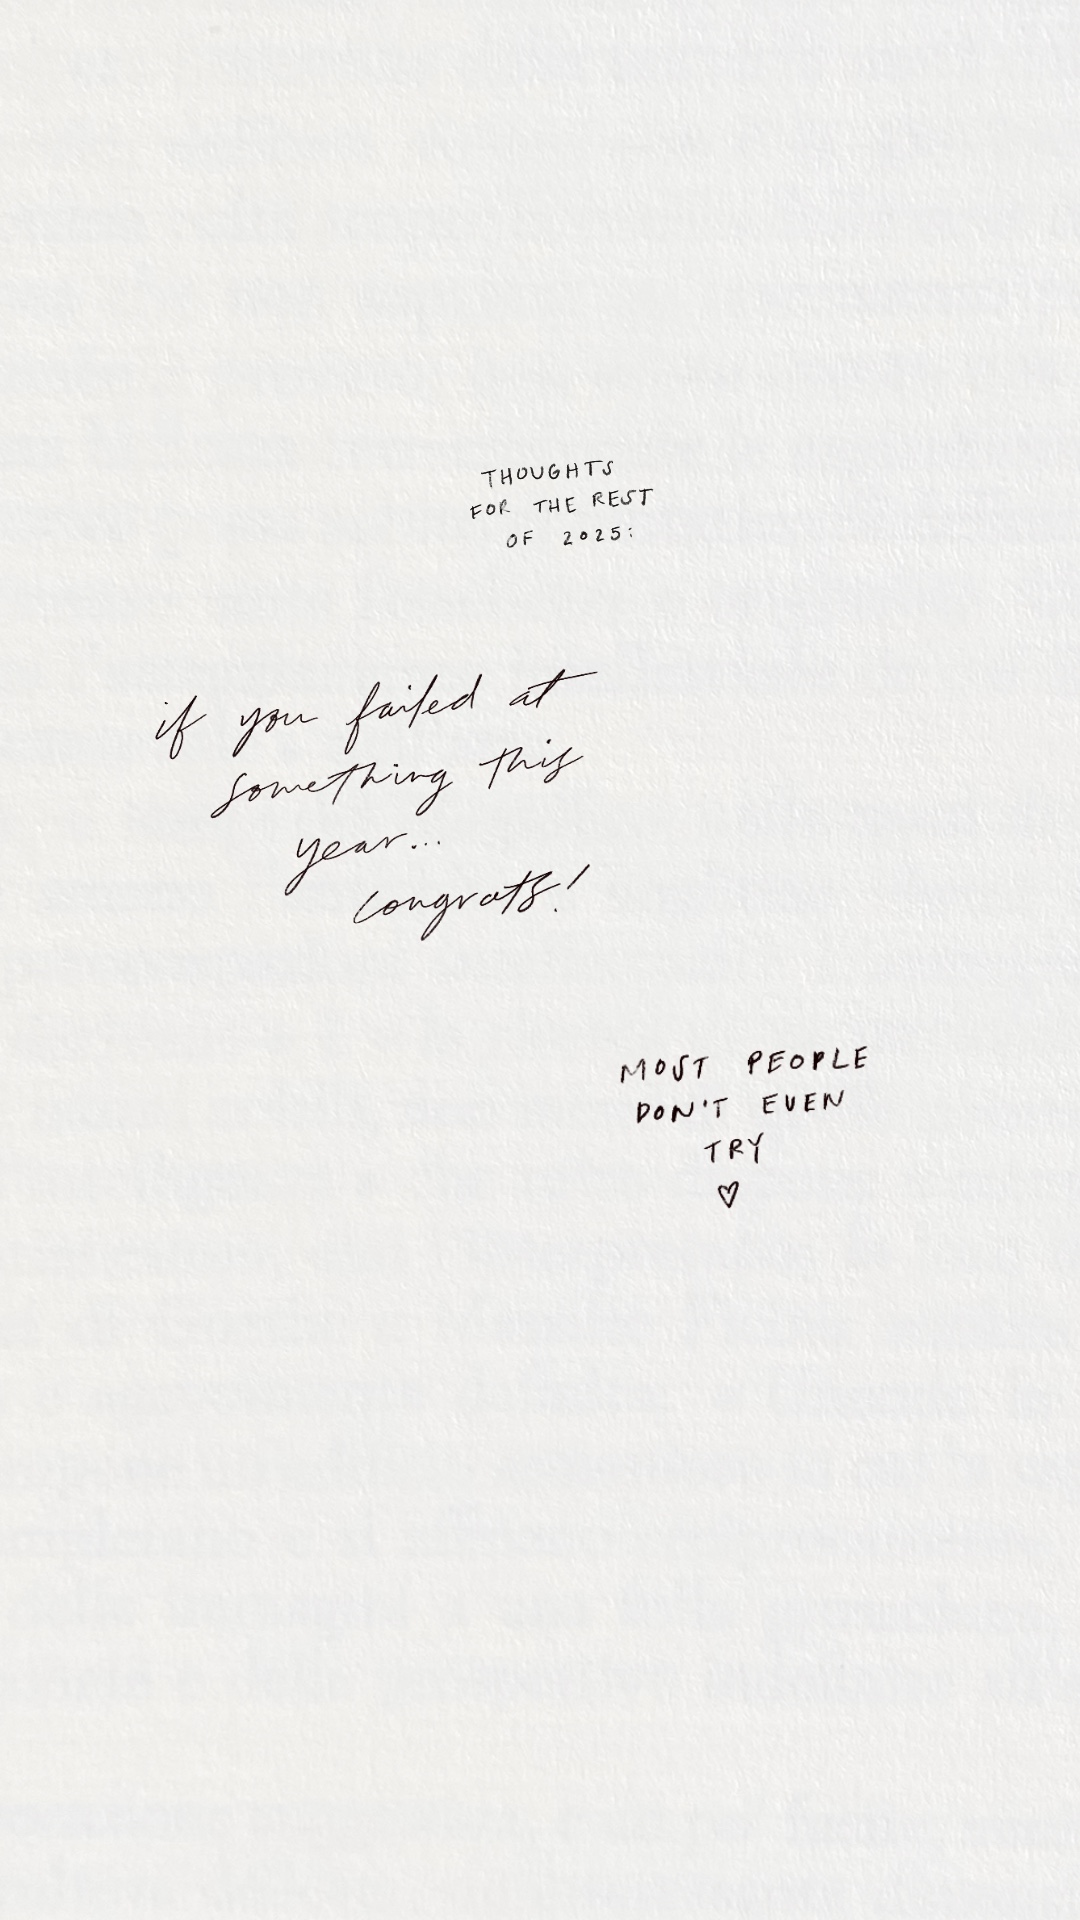 THOUGHTS
FOR THE REST
OF 2025:
if you failed at
something this
year...
congrats!
MOST PEOPLE
DON'T EVEN
TRY
♡